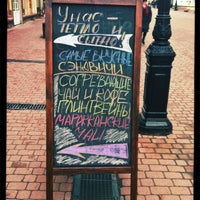 У нас –
тепло и
сытно!
Самые вкусные
сэндвичи
Согревающие
чаи и кофе
глинтвейны
Марокканские
чаи